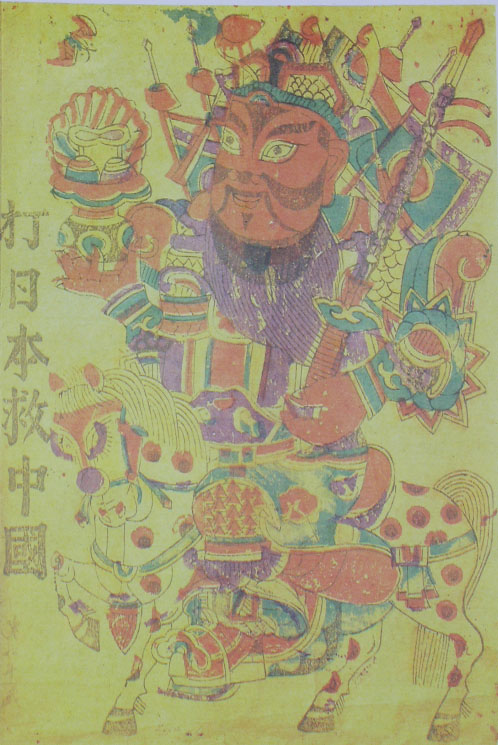 打日本救中國